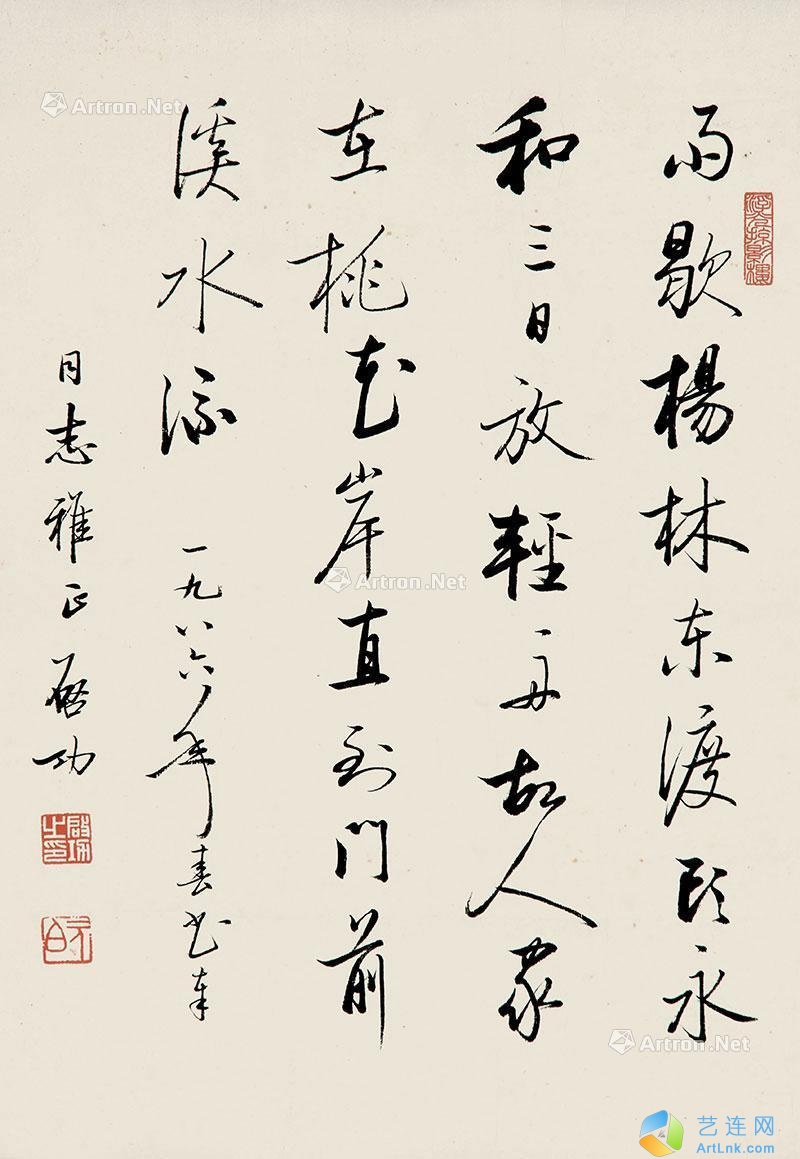 雨歇楊林东渡頭永
和三日放輕舟故人家
在桃花岸直到門前
溪水流 一九八六年春书奉
同志雅正 啟功
啟功之印
元白
Artron.Net
Artron.Net
Artron.Net
Artron.Net
艺连网
ArtLnk.com